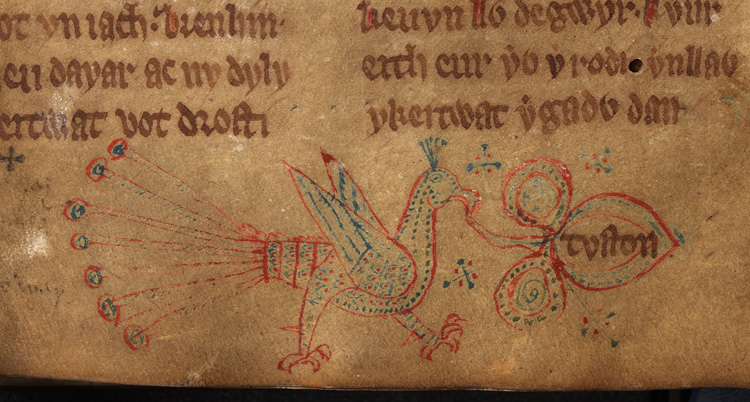 ot yn iach. Brenhin
dayar ac ny dyly
eitwat vot drosti
llỽ degwyr.
erth eur yỽ y rodi ynllaỽ
ykeitwat ygadỽ dan
tyston